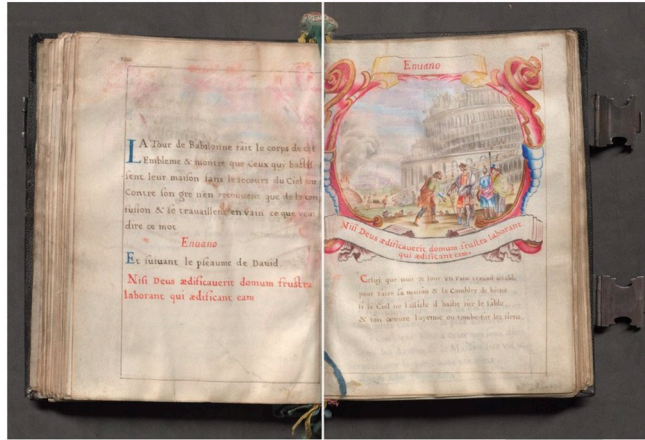 LA Tour de Babilonne fait le corps de cet
Embleme & montre que Ceux qui bastis
sent leur maison sans le secours du Ciel ou
Contre son gre n'en
& se travaillent en vain ce que veut
dire ce mot
Enuano
Et suiuant le pseaume de Dauid
Nisi Deus ædificauerit domum frustra
laborant qui ædificant eam
Enuano
Nisi Deus ædificauerit domum frustra laborant
qui ædificant eam
Celuy que nuit & jour en vain
pour faire sa maison & la Combler de biens
si le Ciel ne luy aide il bastit sur le sable
& son oeuure